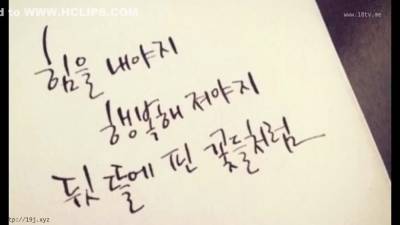 d to www.HCLIPS.com
www.18tv.me
힘을 내야지
행복해 져야지
뒷 뜰에 핀 꽃들처럼
ttp://19j.xyz